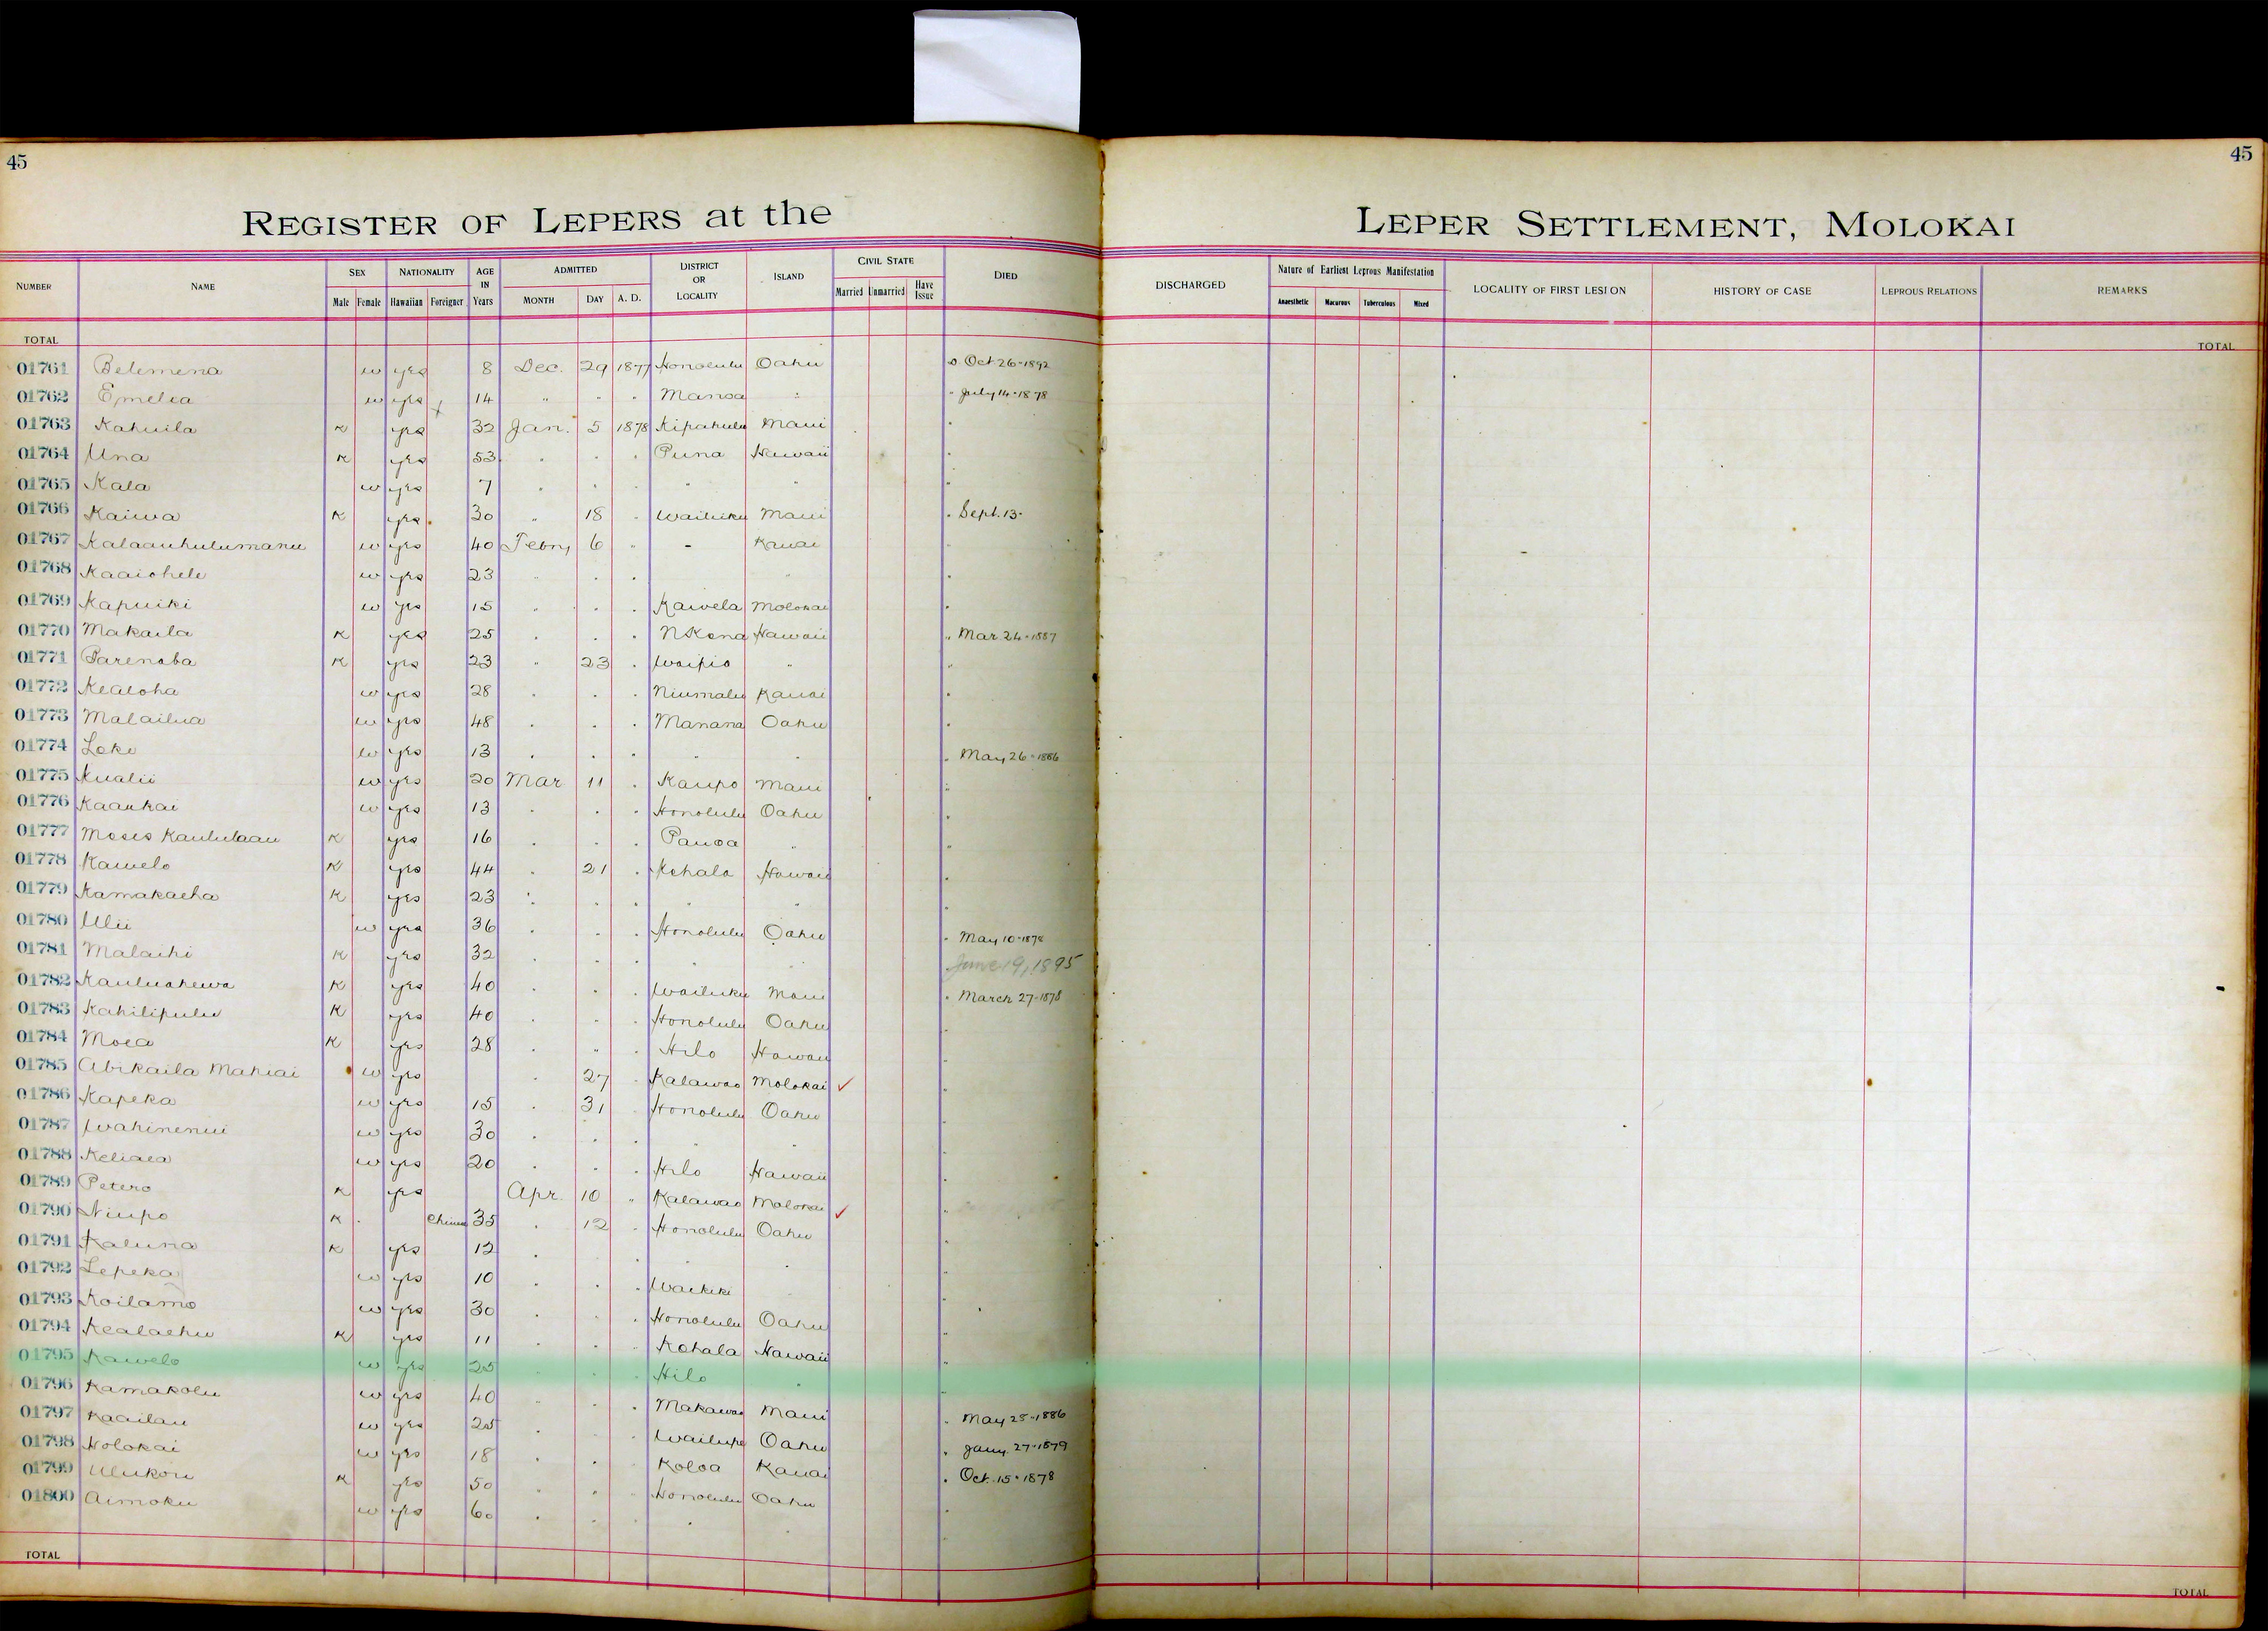 45
45
REGISTER OF LEPERS at the LEPER SETTLEMENT, MOLOKAI
NUMBER NAME SEX NATIONALITY AGE IN Years ADMITTED DISTRICT OR LOCALITY ISLAND CIVIL STATE DIED DISCHARGED Nature of Earliest Leprous Manifestation LOCALITY OF FIRST LESION HISTORY OF CASE LEPROUS RELATIONS REMARKS
Male Female Hawaiian Foreigner MONTH DAY A. D. Married Unmarried Have Issue Anaesthetic Macurous Tuberculous Mixed
TOTAL TOTAL
01761 Belemena w yes 8 Dec. 29 1877 Honolulu Oahu Oct 26-1892
01762 Emelia w yes 14 " " " Manoa " " July 14-1878
01763 Kahuila K yes 32 Jan. 5 1878 Kipahulu Maui
01764 Una K yes 53 " " " Puna Hawaii
01765 Kala w yes 7 " " " " "
01766 Kaiwa K yes 30 " 18 " Wailuku Maui " Sept. 13-
01767 Kalaauhulumanu w yes 40 Febry 6 " - Kauai
01768 Kaaiohele w yes 23 " " " "
01769 Kapuiki w yes 15 " " " Kawela Molokai
01770 Makaila K yes 25 " " " N Kona Hawaii " Mar. 24-1887
01771 Parenaba K yes 23 " 23 " Waipio "
01772 Kealoha w yes 28 " " " Niumalu Kauai
01773 Malailua w yes 48 " " " Manana Oahu
01774 Loke w yes 13 " " " " " " May 26-1886
01775 Kualii w yes 20 Mar 11 " Kaupo Maui
01776 Kaaukai w yes 13 " " " Honolulu Oahu
01777 Moses Kaululaau K yes 16 " " " Pauoa "
01778 Kawelo K yes 44 " 21 " Kohala Hawaii
01779 Kamakaeha K yes 23 " " " " "
01780 Ulii w yes 36 " " " Honolulu Oahu " May 10-1878
01781 Malaihi K yes 32 " " " " " June 19, 1895
01782 Kauluahewa K yes 40 " " " Wailuku Maui " March 27-1878
01783 Kahilipulu K yes 40 " " " Honolulu Oahu
01784 Moea K yes 28 " " " Hilo Hawaii
01785 Abikaila Mahiai w yes " 27 " Kalawao Molokai ✓
01786 Kapeka w yes 15 " 31 " Honolulu Oahu
01787 Wahinenui w yes 30 " " " " "
01788 Keliaea w yes 20 " " " Hilo Hawaii
01789 Petero K yes Apr. 10 " Kalawao Molokai ✓
01790 Niupo K Chinese 35 " 12 " Honolulu Oahu
01791 Kaluna K yes 12 " " "
01792 Lepeka w yes 10 " " " Waikiki
01793 Koilamo w yes 30 " " " Honolulu Oahu
01794 Kealaehu K yes 11 " " " Kohala Hawaii
01795 Kawelo w yes 25 " " " Hilo "
01796 Kamakolu w yes 40 " " " Makawao Maui " May 25-1886
01797 Kaailau w yes 25 " " " Wailupe Oahu " Jany. 27-1879
01798 Holokai w yes 18 " " " Koloa Kauai " Oct. 15-1878
01799 Ulukou K yes 50 " " " Honolulu Oahu
01800 Aimoku w yes 60 " " " " "
TOTAL TOTAL